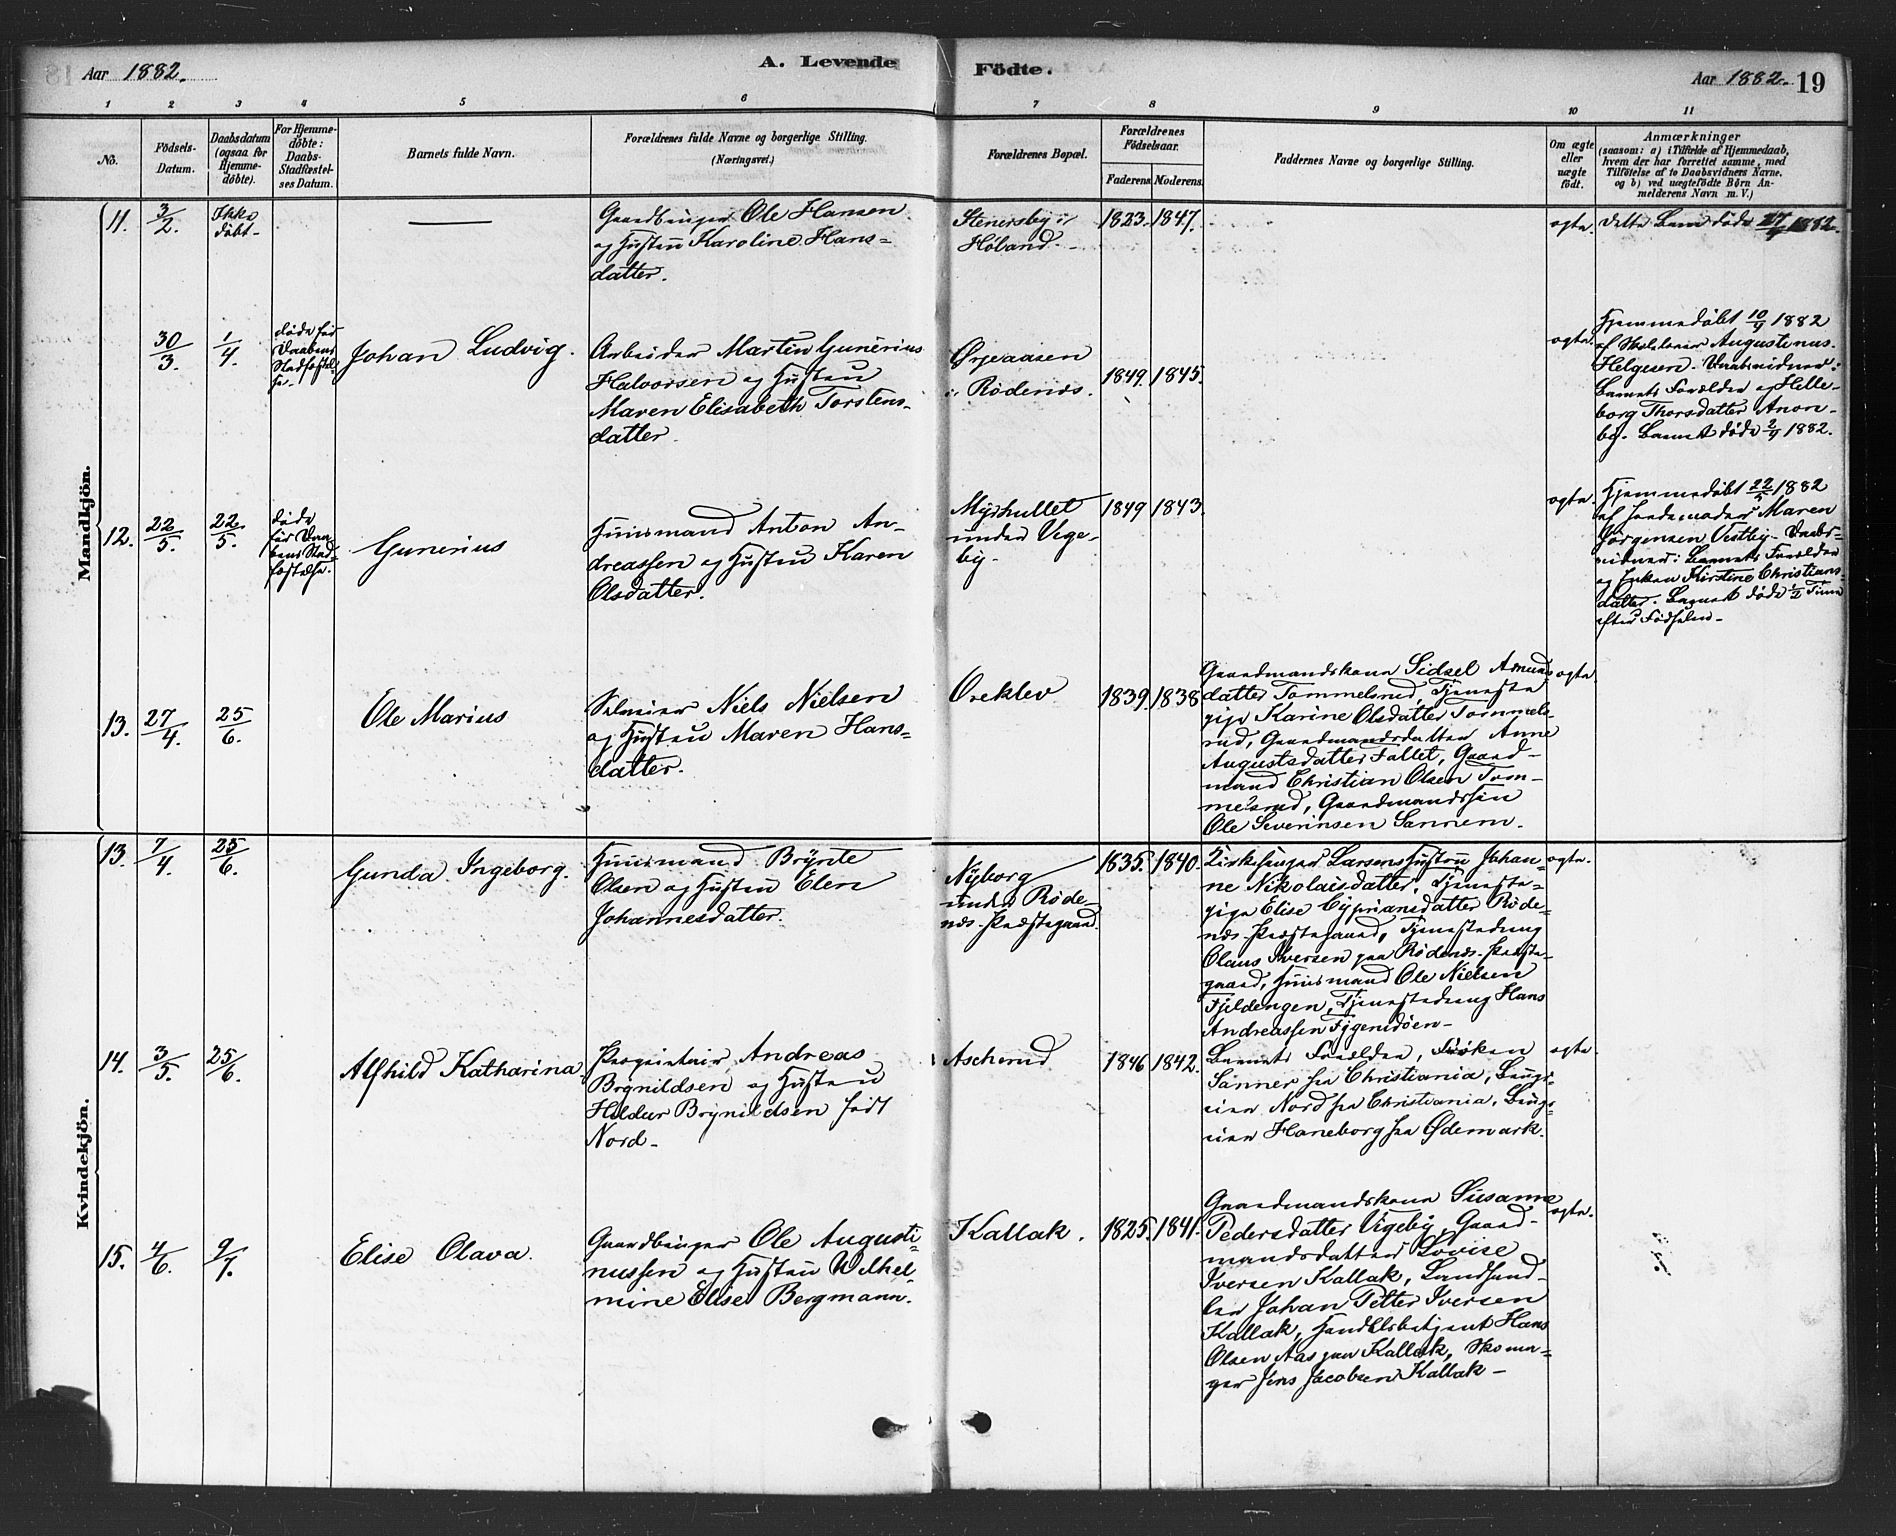 Aar 1882.
A. Levende
Födte.
Aar 1882. 19
1 2 3 4 5 6 7 8 9 10 11
No.
Födsels-
Datum.
Daabsdatum
(ogsaa for
Hjemme-
döbte).
For Hjemme-
døbte:
Daabs-
Stadfæstel-
ses Datum.
Barnets fulde Navn.
Forældrenes fulde Navne og borgerlige Stilling.
(Næringsvei.)
Forældrenes Bopæl.
Forældrenes
Födselsaar.
Faderens.
Moderens.
Faddernes Navne og borgerlige Stilling.
Om ægte
eller
uægte
født.
Anmærkninger
(saasom: a) i Tilfælde af Hjemmedaab,
hvem der har forrettet samme, med
Tilföielse af to Daabsvidners Navne.
og b) ved uægtefödte Börn An-
melderens Navn m. V.)
Mandkjön.
11.
3/2.
Ikke
døbt-
Gaardbruger Ole Hansen
og Hustru Karoline Hans-
datter.
Stenersby i
Høland.
1823. 1847.
ægte.
Dette Barn døde 1882.
30/3.
1/4.
døde før
Daabens
Stadfæstel-
se.
Johan Ludvig.
Arbeider Martin Gunerius
Halvorsen og Hustru
Maren Elisabeth Torstens-
datter.
Ørjeaasen
i Rødenæs.
1849. 1845.
ægte.
Hjemmedøbt 1882
af Skolelærer Augustinus
Helgesen. Daabsvidner:
Barnets Forældre og Helle-
borg Thorsdatter Anon-
by. Barnet døde 2/4 1882.
12.
22/5.
22/5.
døde
før Daa-
bens Stad-
fæstelse.
Gunerius
Huusmand Anton An-
dreassen og Hustru Karen
Olsdatter.
Myrhullet
under Vige-
by.
1849 1843.
ægte.
Hjemmedøbt 22/5 1882
af Jordemoder Maren
Jørgensen Vestby. Daabs-
vidner: Barnets Forældre
og Enken Kirstine Christians-
datter. Barnet døde 1/2 Time
efter Fødselen-
13.
27/4.
25/6.
Ole Marius
Selveier Niels Nielsen
og Hustru Maren Hans-
datter.
Oreklev
1839. 1838
Gaardmandskone Sidsel Amunds
datter Tommelsrud, Tjeneste
pige Karine Olsdatter Tommels-
rud, Gaardmandsdatter Anne
Augustsdatter Fallet, Gaard-
mand Christian Olsen Tom-
melsrud, Gaardmandssøn
Ole Severinsen Sannem.
ægte.
Kvindekjön.
13.
7/4.
25/6.
Gunda Ingeborg.
Huusmand Brynte
Olsen og Hustru Elen
Johannesdatter.
Nyborg
under Røde-
næs Præstegaard.
1835. 1840.
Kirkesanger Larsens Hustru Johan-
ne Nikolaisdatter, Tjeneste-
pige Elise Cypriansdatter Røde-
næs Præstegaard, Tjenestedreng
Olaus Iversen paa Rødenæs Præste-
gaard, Huusmand Ole Nielsen
Fjeldengen, Tjenestedreng Hans
Andreassen
ægte.
14.
3/5.
25/6.
Alfhild Katharina.
Proprietair Andreas
Brynildsen og Hustru
Heldur Brynildsen født
Nord-
Ascherud
1846 1842.
Barnets Forældre, Frøken
Sanner fra Christiania,
Nord fra Christiania,
Haneborg fra Ødemark.
ægte.
15.
4/6.
9/7.
Elise Olava.
Gaardbruger Ole Augusti-
nussen og Hustru Wilhel-
mine Elise Bergmann.
Kallak.
1825. 1841.
Gaardmandskone Susanne
Pedersdatter Vigeby, Gaard-
mandsdatter Lovise
Iversen Kallak, Landhand-
ler Johan Petter Iversen
Kallak, Handelsbetjent Hans
Olsen Aas paa Kallak, Skoma-
ger Jens Jacobsen Kallak-
ægte.